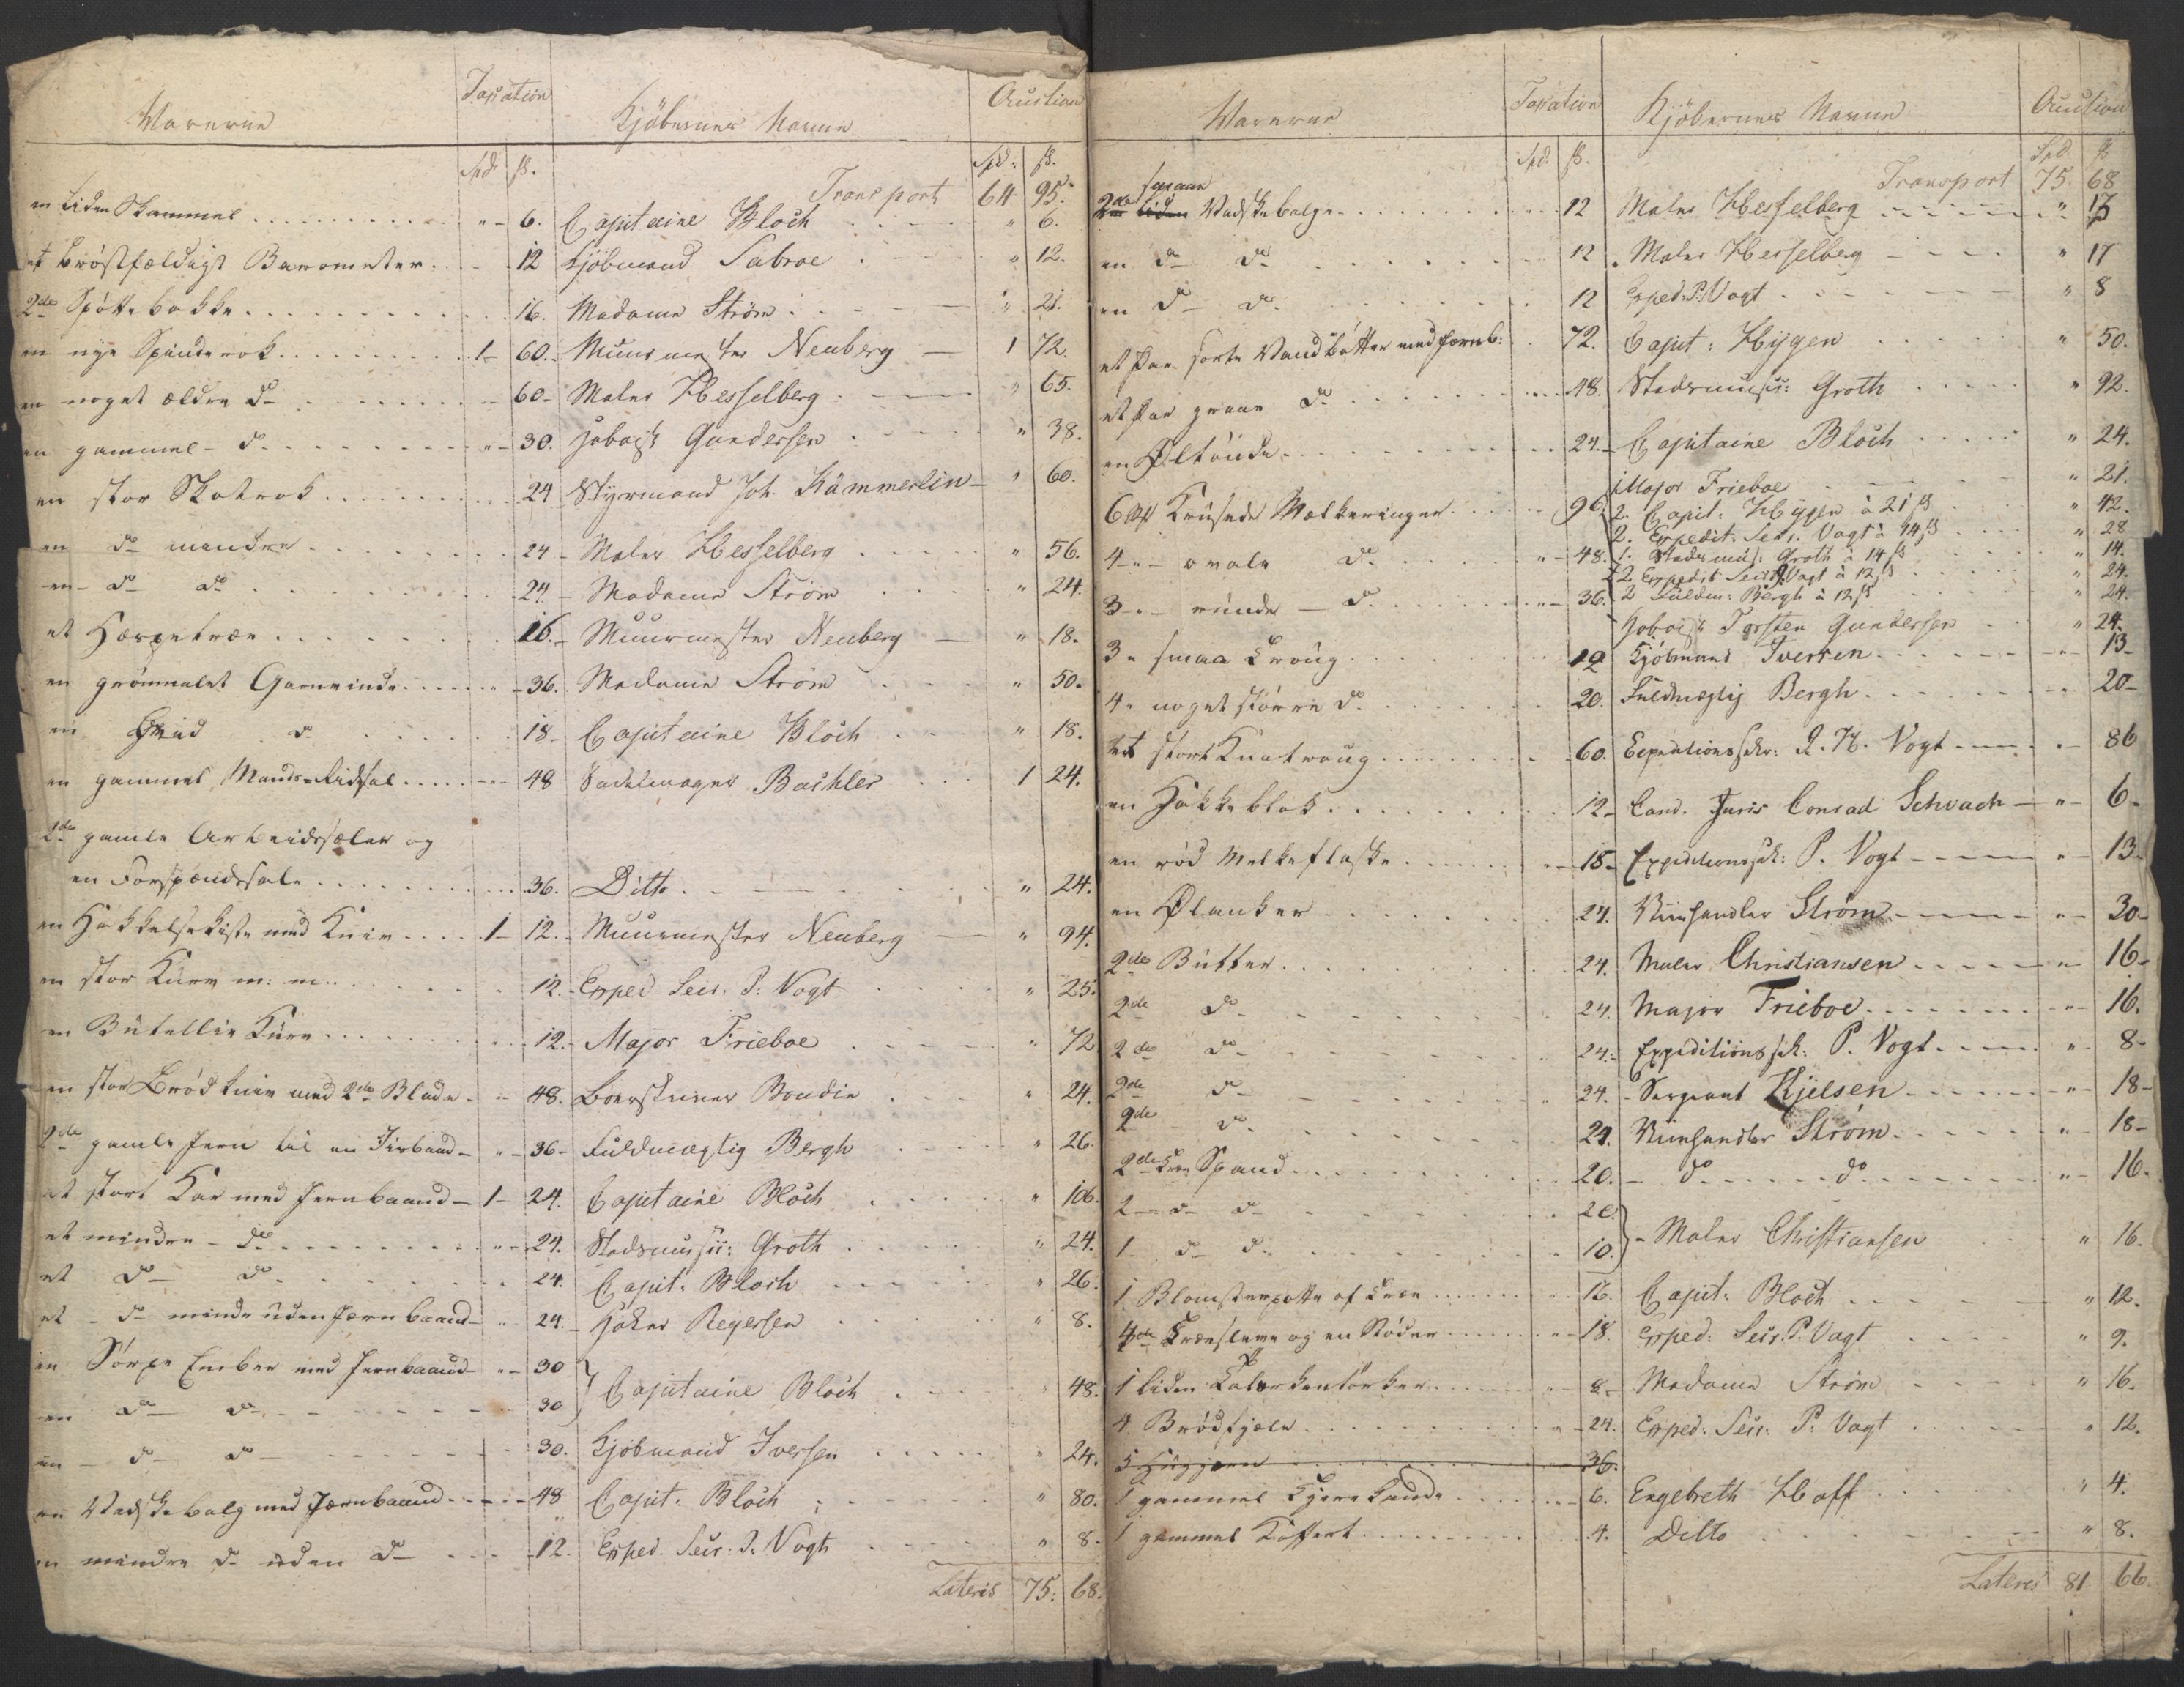 Varerne Taxation Kjöbernes Navne Auction
Spd: ß. Spd: ß.
Transport 64 95.
en liden Skammel 6. Capitaine Bloch " 6.
et bröstfældigt Barometer 12 Kjöbmand Sabroe " 12.
2de Spöttebakke 16. Madame Ström " 21.
en nye Spinderok 1 60. Muurmester Neuberg 1 72.
en noget ældre do 60 Maler Hesselberg " 65.
en gammel do 30. Hoboist Gundersen " 38.
en stor Skotrok 24 Styrmand Joh. Kämmerlin " 60.
en do mindre 24 Maler Hesselberg " 56.
en do do 24 Madame Ström " 24.
et Harpetræe 16. Muurmester Neuberg " 18.
en grönmalet Garnvinde 36. Madame Ström " 50.
en hvid do 18 Capitaine Bloch " 18.
en gammel Mands-Ridsal 48 Sadelmager Bachler 1 24.
2de gamle Arbeidssæler og
en Forspændssæle 36. Ditto " 24.
en Hakkelsekiste med Kniv 1 12. Muurmester Neuberg " 94.
en stor Kurv m: m: 12. Exped. Secr. P: Vogt " 25.
en Butellie Kurv 12. Major Frieboe " 72
en stor Brödkniv med 2de Blade 48. Boersteiner Boudin " 24.
2de gamle Jern til en Firbaand 36 Fuldmægtig Bergh " 26.
et stort Kar med Jernbaand 1 24. Capitaine Bloch " 106.
et mindre do 24. Stadsmusic: Groth " 24.
et do do 24. Capit: Bloch " 26.
et do mindre uden Jernbaand " 24. Höker Reyersen " 8.
en Sörpe Ember med Jernbaand 30
en do do 30 Capitaine Bloch 48.
en do do 30. Kjöbmand Iversen " 24.
en Vadskebalg med Jernbaand 48 Capit: Bloch " 80.
en mindre do uden do 12. Exped. Secr. P. Vogt " 8.
Lateris 75. 68.
Varerne Taxation Kjöbernes Navne Auction
Spd. ß. Spd ß
Transport 75. 68
smaae
2de liden Vadskebalge 12 Maler Hesselberg " 13
en do do 12 Maler Hesselberg " 17
en do do 12 Exped: P: Vogt " 8
et Par sorte Vandbötter med Jernb: 72. Capit: Hygen " 50.
et Par graae do 48. Stadsmusic: Groth " 92.
en Öltönde 24. Capitaine Bloch " 24.
1 Major Frieboe " 21.
6 St Krusede Melkeringer 96. 2. Capit: Hygen à 21 ß " 42.
2. Expedit. Secr. Vogt à 14 ß " 28
4 ovale do 48. 1. Stadsmus: Groth à 14 ß " 14.
2 Expedit Secr P Vogt à 12 ß " 24.
3 runde do 36. 2 Fuldm: Bergh à 12 ß " 24.
Hoboist Torsten Gundersen " 24.
3 smaa Troug 12 Kjöbmand Iversen " 13
4 noget större do 20. Fuldmægtig Bergh 20
et stort Knatroug 60. Expeditionssekr: P. H. Vogt 86
en Hakkeblok 12 Cand. Juris Conrad Schwach " 6
en röd Melkeflaske 18 Expeditionssek: P. Vogt " 13
en Ölanker 24. Viinhandler Ström " 30
2de Bütter 24. Maler Christiansen " 16
2de do 24. Major Frieboe " 16.
2de do 24. Expeditionssek: P. Vogt " 8
2de do 24. Sergeant Kjelsen " 18
2de do 24. Viinhandler Ström " 18
2de Træ Spand 20. do do " 16.
2 do do 20.
1 do do 10. Maler Christiansen " 16.
1 Blomsterpotte af Træe 16. Capit: Bloch " 12.
4de Træslever og en Stöder 18. Exped: Secr. P: Vogt " 9.
1 liden Talerkentörker 8 Madame Ström " 16.
4 Brödfjæle 24. Exped: Secr. P. Vogt " 12.
5 Huggjern 36.
1 gammel Tjærekande 6. Engebreth Hoff " 4.
1 gammel Koffert 4. Ditto " 8.
Lateris 81 66.